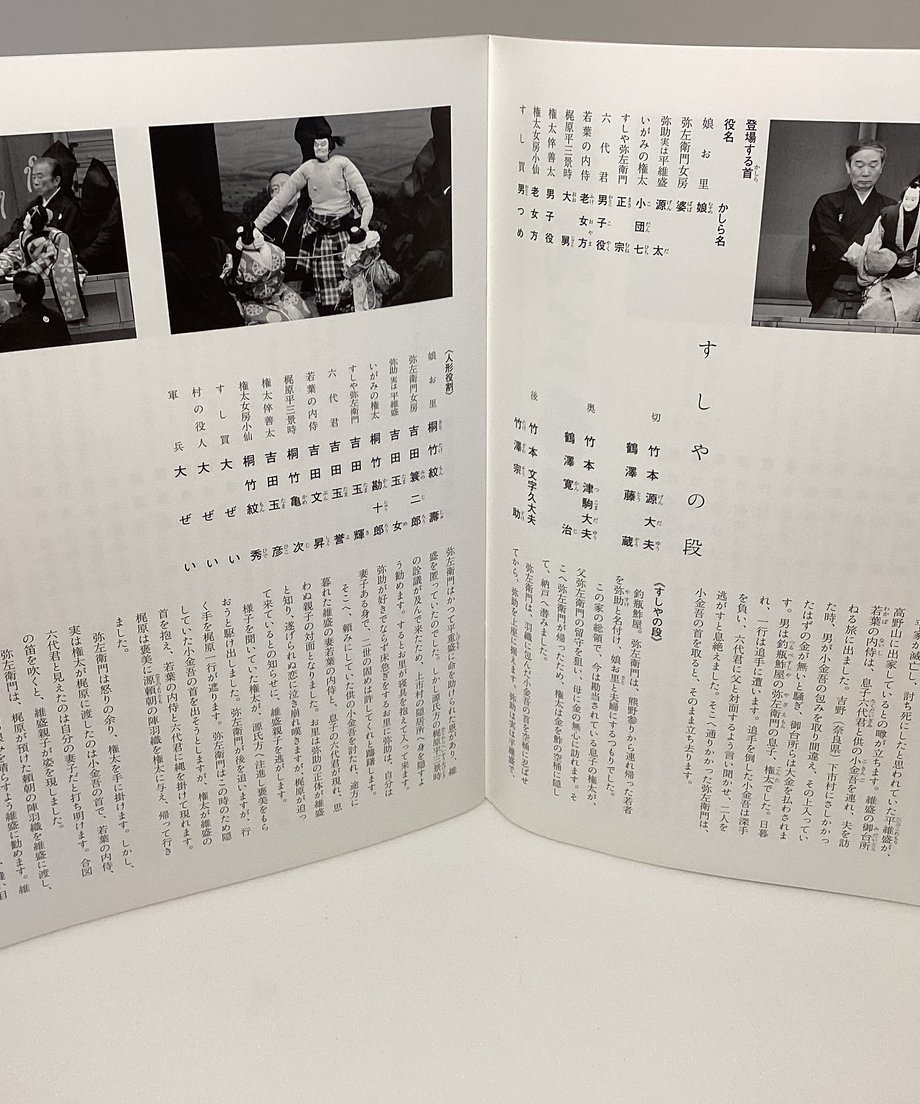 登場する首
役名 かしら名
娘お里 娘
弥左衛門女房 婆
弥助実は平維盛 源太
いがみの権太 小団七
すしや弥左衛門 正宗
六代君 男子役
若葉の内侍 老女方
梶原平三景時 大舅
権太倅善太 男子役
権太女房小仙 老女方
すし買 男つめ
すしやの段
切 竹本源大夫
鶴澤藤蔵
奥 竹本津駒大夫
鶴澤寛治
後 竹本文字久大夫
竹澤宗助
平家が滅亡し、討ち死にしたと思われていた平維盛が、
高野山に出家しているとの噂が立ちます。維盛の御台所
若葉の内侍は、息子六代君と供の小金吾を連れ、夫を訪
ねる旅に出ました。吉野(奈良県)下市村にさしかかっ
た時、男が小金吾の包みを取り間違え、その上入ってい
たはずの金が無いと騒ぎ、御台所らは大金を払わされま
す。男は釣瓶鮓屋の弥左衛門の息子、権太でした。日暮
れ、一行は追手に遭います。追手を倒した小金吾は深手
を負い、六代君に父と対面するよう言い聞かせ、二人を
逃がすと息絶えました。そこへ通りかかった弥左衛門は、
小金吾の首を取ると、そのまま立ち去ります。
《すしやの段》
釣瓶鮓屋。弥左衛門は、熊野参りから連れ帰った若者
を弥助と名付け、娘お里と夫婦にするつもりでした。
この家の総領で、今は勘当されている息子の権太が、
父弥左衛門の留守を狙い、母に金の無心に訪れます。そ
こへ弥左衛門が帰ったため、権太は金を鮓の空桶に隠し
て、納戸へ潜みました。
弥左衛門は、羽織に包んだ小金吾の首を空桶に忍ばせ
てから、弥助を上座に据えます。弥助は実は平維盛で、
〈人形役割〉
娘お里 桐竹紋壽
弥左衛門女房 吉田簑二郎
弥助実は平維盛 吉田玉女
いがみの権太 桐竹勘十郎
すしや弥左衛門 吉田玉輝
六代君 吉田玉誉
若葉の内侍 吉田文昇
梶原平三景時 桐竹亀次
権太倅善太 吉田玉彦
権太女房小仙 桐竹紋秀
すし買 大ぜい
村の役人 大ぜい
軍兵 大ぜい
弥左衛門はかつて平重盛に命を助けられた恩があり、維
盛を匿っていたのでした。しかし源氏方の梶原平三景時
の詮議が及んで来たため、上市村の隠居所へ身を隠すよ
う勧めます。するとお里が寝具を抱えて入って来ます。
弥助が好きでならず床急ぎをするお里に弥助は、自分は
妻子ある身で、二世の固めは許してくれと躊躇します。
そこへ、頼みにしていた供の小金吾を討たれ、途方に
暮れた維盛の妻若葉の内侍と、息子の六代君が現れ、思
わぬ親子の対面となりました。お里は弥助の正体が維盛
と知り、遂げられぬ恋に泣き崩れ嘆きますが、梶原が迫っ
て来ているとの知らせに、維盛親子を逃がします。
様子を聞いていた権太が、源氏方へ注進し褒美をもら
おうと駆け出しました。弥左衛門が後を追いますが、行
く手を梶原一行が遮ります。弥左衛門はこの時のため隠
していた小金吾の首を出そうとしますが、権太が維盛の
首を抱え、若葉の内侍と六代君に縄を掛けて現れます。
梶原は褒美に源頼朝の陣羽織を権太に与え、帰って行き
ました。
弥左衛門は怒りの余り、権太を手に掛けます。しかし、
実は権太が梶原に渡したのは小金吾の首で、若葉の内侍、
六代君と見えたのは自分の妻子だと打ち明けます。合図
の笛を吹くと、維盛親子が姿を現しました。
弥左衛門は、梶原が預けた頼朝の陣羽織を維盛に渡し、